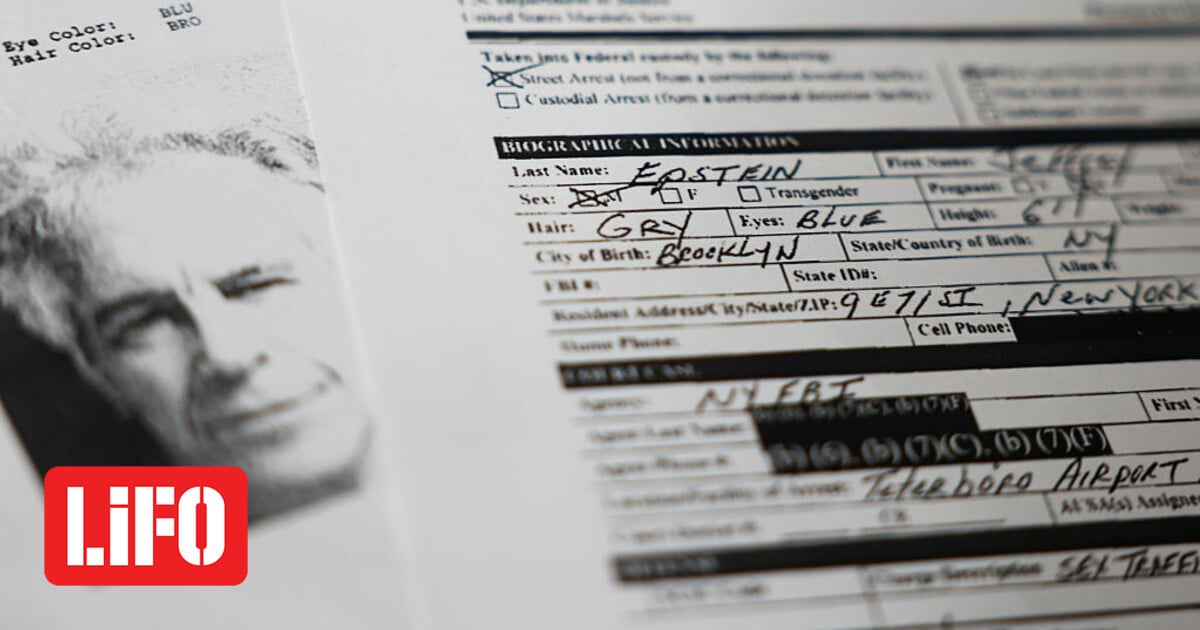 Eye Color: BLU
Hair Color: BRO
United States Marshals Service
Taken into Federal custody by the following:
Street Arrest (not from a correctional detention facility)
Custodial Arrest (from a correctional detention facility)
BIOGRAPHICAL INFORMATION
Last Name: EPSTEIN First Name: Jeffrey
Sex: M F Transgender Pregnant:
Hair: GRY Eyes: BLUE Height: 6'1" Weight:
City of Birth: BROOKLYN State/Country of Birth: NY
FBI #: State ID#: Alien #:
Resident Address/City/State/ZIP: 9 E 71 ST, NEW YORK
Home Phone: Cell Phone:
COURT CASE
Agency: NY FBI
Agent Last Name: (b) (6), (b) (7)(C), (b) (7)(F) First N
Agent Phone #: (b) (6), (b) (7)(C), (b) (7)(F)
Location/Facility of Arrest: Teterboro AIRPORT
AUSA(s) Assigned
Charge Description SEX TRAFFI
LiFO